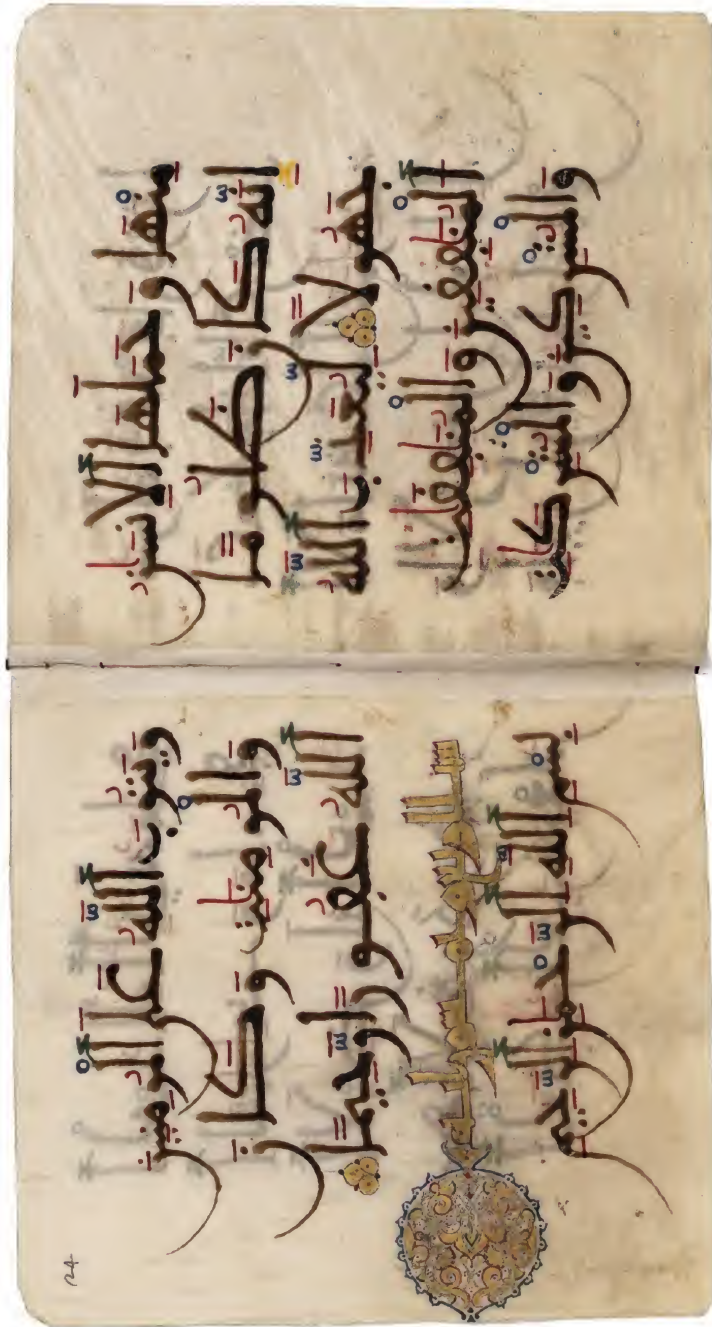 مِنْهَا وَحَمَلَهَا اَ۬لِانسَٰنُ
إِنَّهُۥ كَانَ ظَلُوماٗ
جَهُولاٗ لِّيُعَذِّبَ اَ۬للَّهُ
اُ۬لْمُنَٰفِقِينَ وَالْمُنَٰفِقَٰتِ
وَالْمُشْرِكِينَ وَالْمُشْرِكَٰتِ
وَيَتُوبَ اَ۬للَّهُ عَلَى اَ۬لْمُومِنِينَ
وَالْمُومِنَٰتِ وَكَانَ
اَ۬للَّهُ غَفُوراٗ
رَّحِيماٗ
بِسْمِ اِ۬للَّهِ اِ۬لرَّحْمَٰنِ اِ۬لرَّحِيمِ